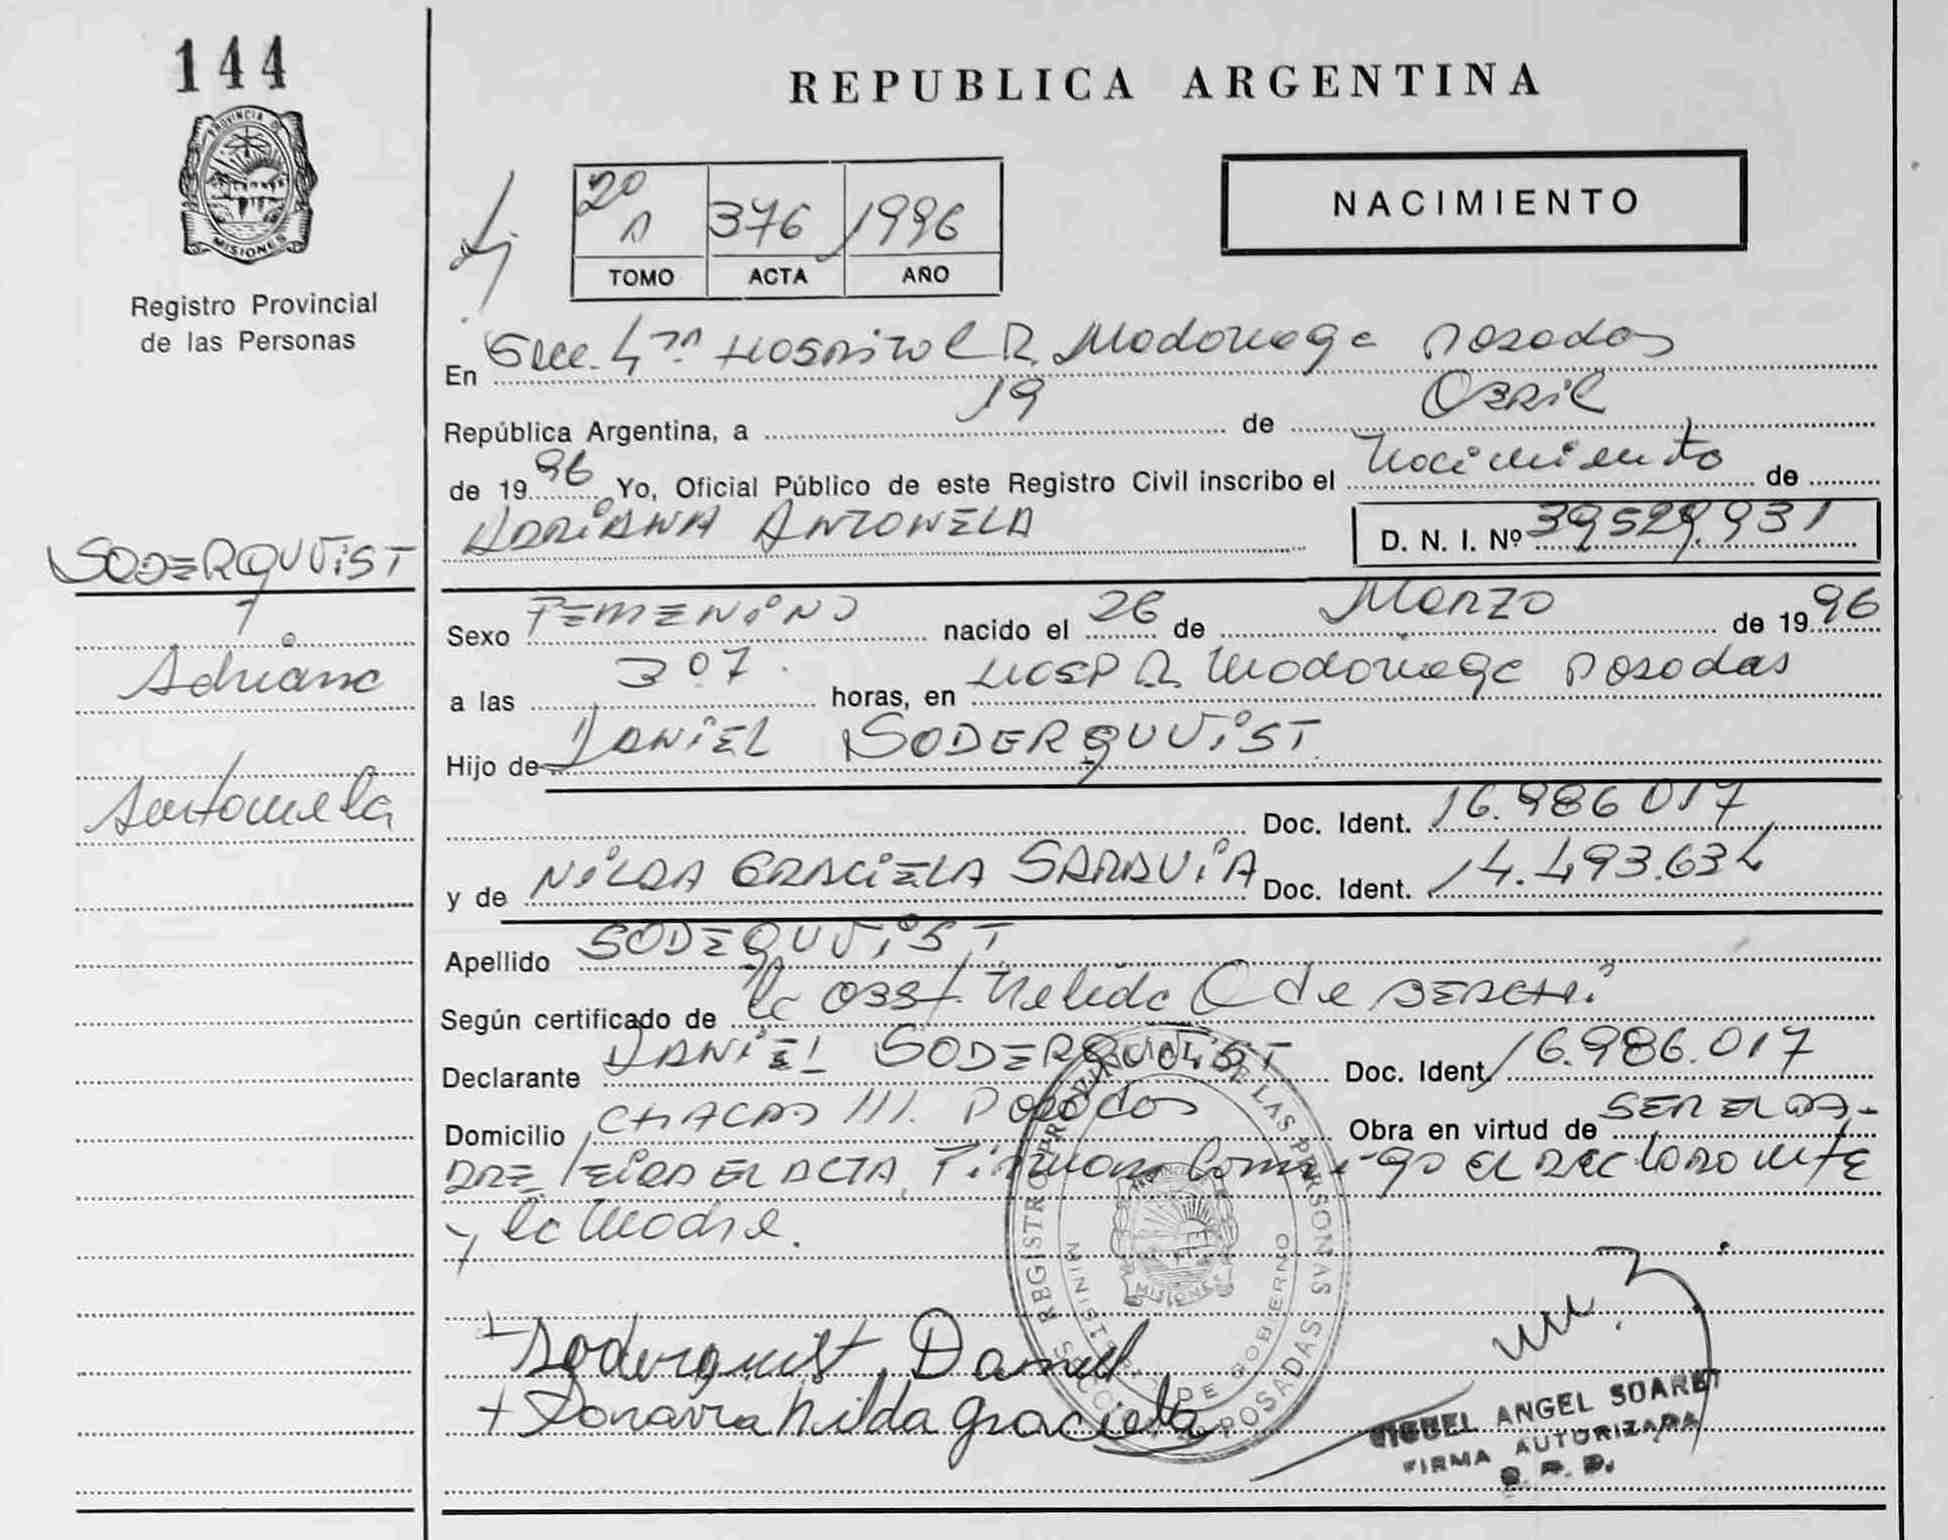 144
PROVINCIA DE
MISIONES
Registro Provincial
de las Personas
REPUBLICA ARGENTINA
NACIMIENTO
20 376 1996
TOMO ACTA AÑO
En Secc. 4ta Hospital R. Madariaga Posadas
República Argentina, a 19 de Abril
de 1996 Yo, Oficial Público de este Registro Civil inscribo el Nacimiento de
ADRIANA ANTONELA D. N. I. Nº 39529.931
SODERQUVIST
Adriana
Antonela
Sexo FEMENINO nacido el 26 de Marzo de 1996
a las 3 07 horas, en HOSP R. Madariaga Posadas
Hijo de DANIEL SODERQUVIST
Doc. Ident. 16.986 017
y de NILDA GRACIELA SARAVIA Doc. Ident. 14.493.634
Apellido SODEQUVIST
Según certificado de la OBST. Nelida C de
Declarante DANIEL SODERQUVIST Doc. Ident. 16.986.017
Domicilio CHACRA 111. Posadas Obra en virtud de SER EL PA-
DRE leida EL ACTA, Firman Conmigo el declarante
y la Madre.
REGISTRO PROVINCIAL DE LAS PERSONAS
MINISTERIO DE GOBIERNO
MISIONES
POSADAS
Soderquist, Daniel
Saravia Nilda Graciela
MIGUEL ANGEL SUAREZ
FIRMA AUTORIZADA